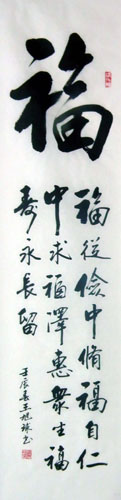 福
福從儉中脩福自仁
中求福澤惠衆生福
壽永長留
壬辰春王旭球書